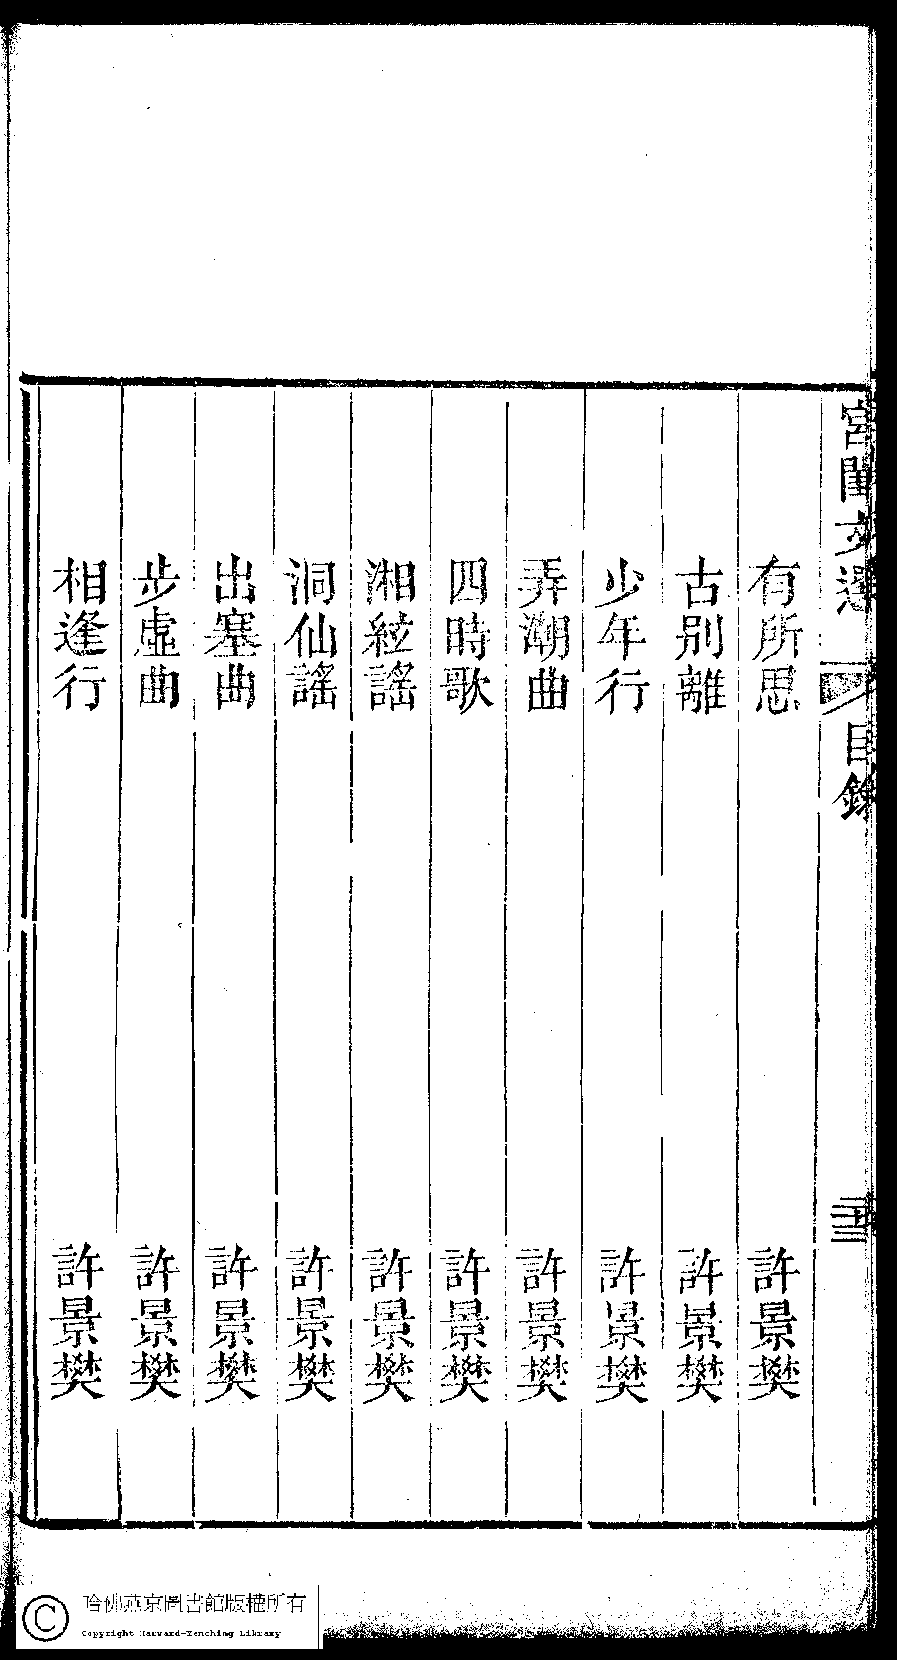 宮閨文選
目錄
有所思 許景樊
古別離 許景樊
少年行 許景樊
弄潮曲 許景樊
四時歌 許景樊
湘絃謠 許景樊
洞仙謠 許景樊
出塞曲 許景樊
步虛曲 許景樊
相逢行 許景樊
哈佛燕京圖書館版權所有
Copyright Harvard-Yenching Library